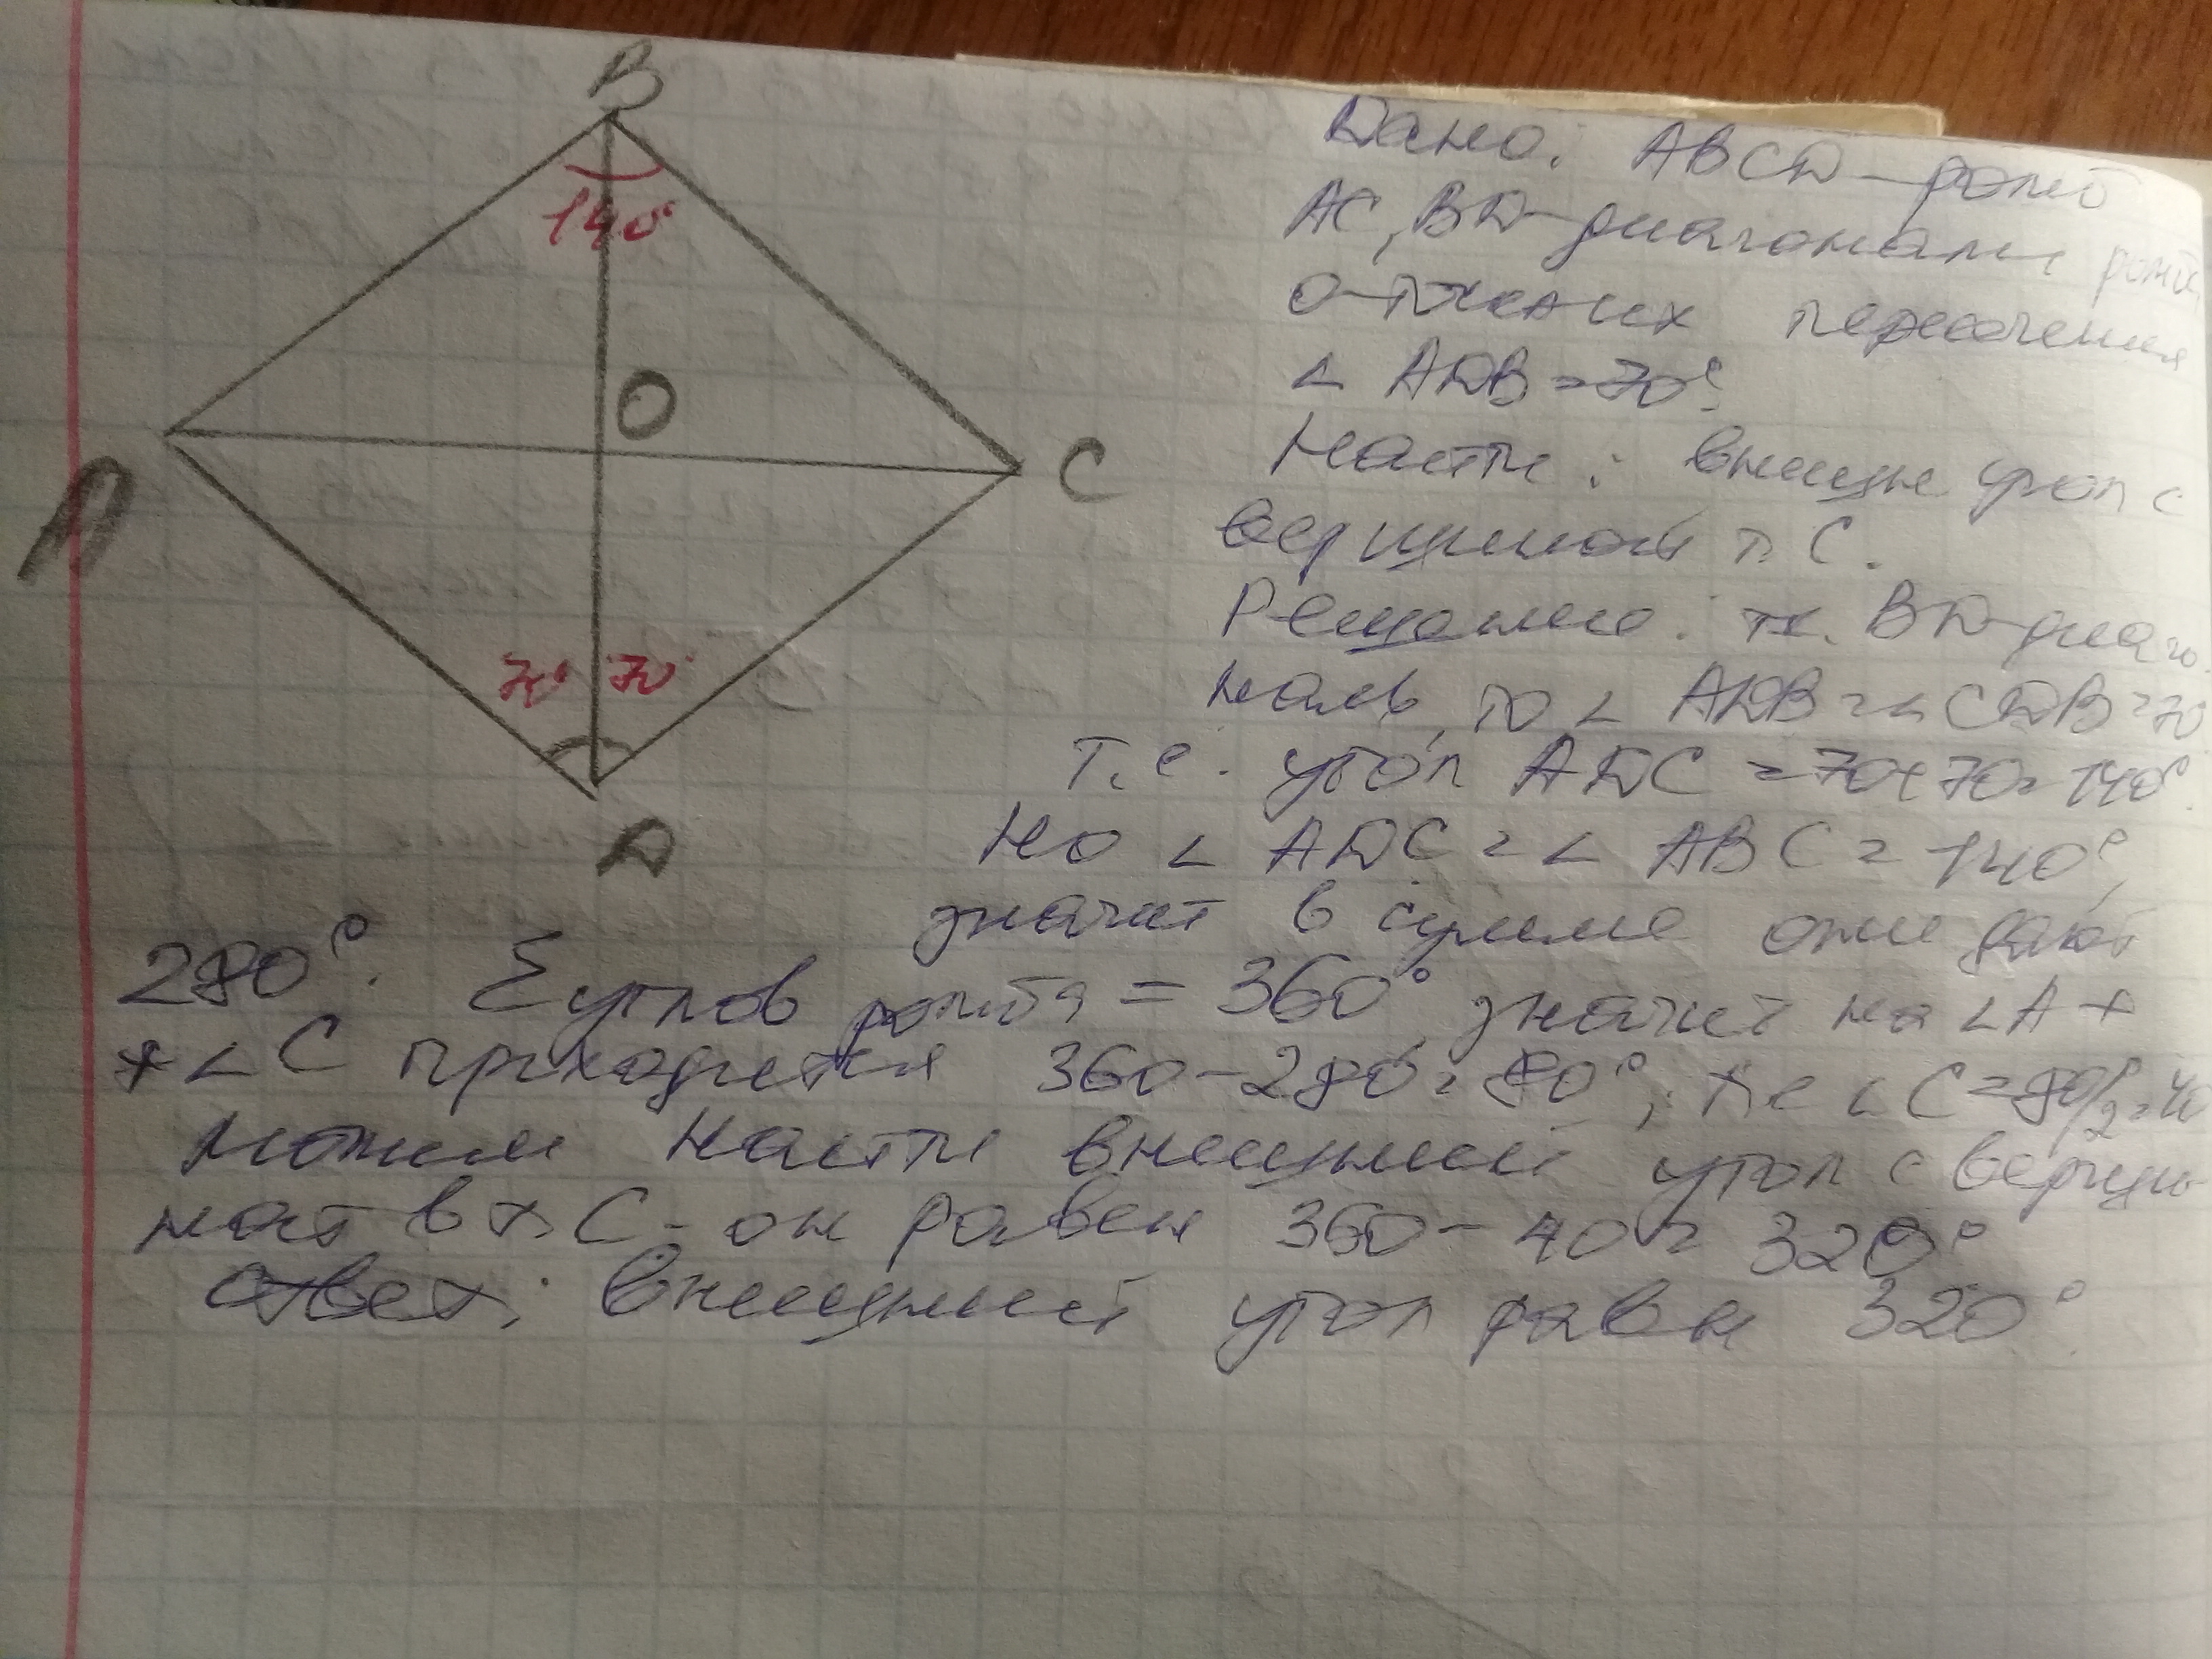 B
140°
O
A
C
70° 70°
D
Дано: ABCD – ромб
AC, BD – диагонали ромба
O – т-ка их пересечения
∠ ADB = 70°.
Найти: внешн угол с
вершиной т. C.
Решение: т.к. BD – диаго
наль, то ∠ ADB = ∠ CDB = 70
т.е. угол ADC = 70 + 70 = 140°.
Но ∠ ADC = ∠ ABC = 140°,
значит в сумме они дают
280°. Σ углов ромба = 360°, значит на ∠A +
+ ∠C приходится 360 – 280 = 80°, т.е ∠ C = 80/2 = 40
Можем найти внешний угол с верши-
ной в т. C – он равен 360 – 40 = 320°
Ответ: внешний угол равен 320°.